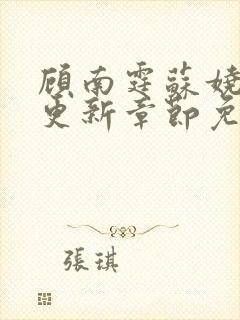 顾南霆苏娆
更新章节免
張琪